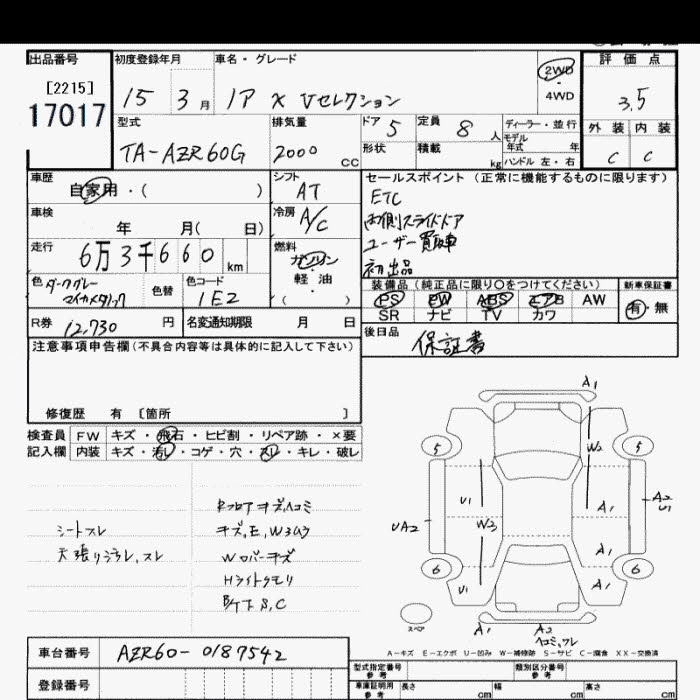 出品番号 初度登録年月 車名・グレード 評価点
[2215]
17017
15 3月 ノア X Vセレクション 2WD・4WD 3.5
型式 排気量 ドア 5 定員 8人 ディーラー・並行 外装 内装
TA-AZR60G 2000cc 形状 積載 kg モデル年式 年 ハンドル 左・右 C C
車歴 シフト セールスポイント(正常に機能するものに限ります)
自家用・( ) AT ETC
車検 冷房 両側スライドドア
年 月( 日) A/C ユーザー買取車
走行 燃料 初出品
6万3千660km ガソリン・軽油・( )
装備品(純正品に限り○をつけてください) 新車保証書
色 ダークグレーマイカメタリック 色替 色コード 1E2 PS PW ABS エアB AW 有・無
SR ナビ TV カワ
R券 12,730 円 名変通知期限 月 日 後日品 保証書
注意事項申告欄(不具合内容等は具体的に記入して下さい)
修復歴 有 〔箇所 〕
検査員 FW キズ・飛石・ヒビ割・リペア跡・×要
記入欄 内装 キズ・汚レ・コゲ・穴・スレ・キレ・破レ
シートスレ
天張りシミ、スレ
Rフロアキズ、ヘコミ
キズ、E、W3ムラ
Wロバーキズ
Hライトクモリ
B/下 S,C
A1
5 5
W2
U1 A1 A2 U1
UA2 W3
A1
6 6
U1 A1
スペア A1 A2
ヘコミ、ワレ
A-キズ E-エクボ U-凹み W-補修跡 S-サビ C-腐食 XX-交換済
車台番号 AZR60-0187542
登録番号
型式指定番号 参考 類別区分番号 参考
車庫証明用 参考 長さ cm 幅 cm 高さ cm